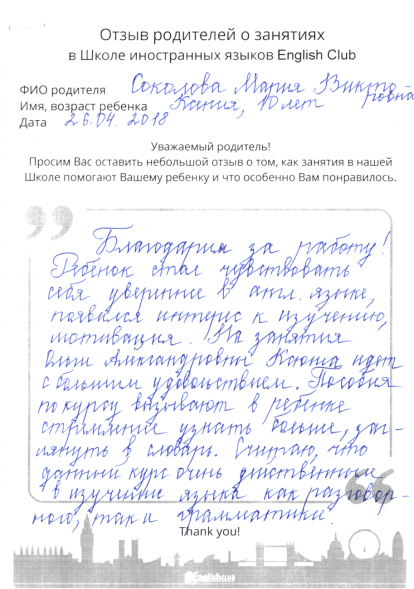 Отзыв родителей о занятиях
в Школе иностранных языков English Club
ФИО родителя Соколова Мария Викто-
ровна
Имя, возраст ребенка Ксения, 10 лет
Дата 26.04.2018
Уважаемый родитель!
Просим Вас оставить небольшой отзыв о том, как занятия в нашей
Школе помогают Вашему ребенку и что особенно Вам понравилось.
Благодарим за работу!
Ребёнок стал чувствовать
себя увереннее в англ. языке,
появился интерес к изучению,
мотивация. На занятия
Ольги Александровны Ксюша идет
с большим удовольствием. Пособия
по курсу вызывают в ребенке
стремление узнать больше, заг-
лянуть в словарь. Считаю, что
данный курс очень действенный
в изучении языка как разговор-
ного, так и грамматики.
Thank you!
English Club